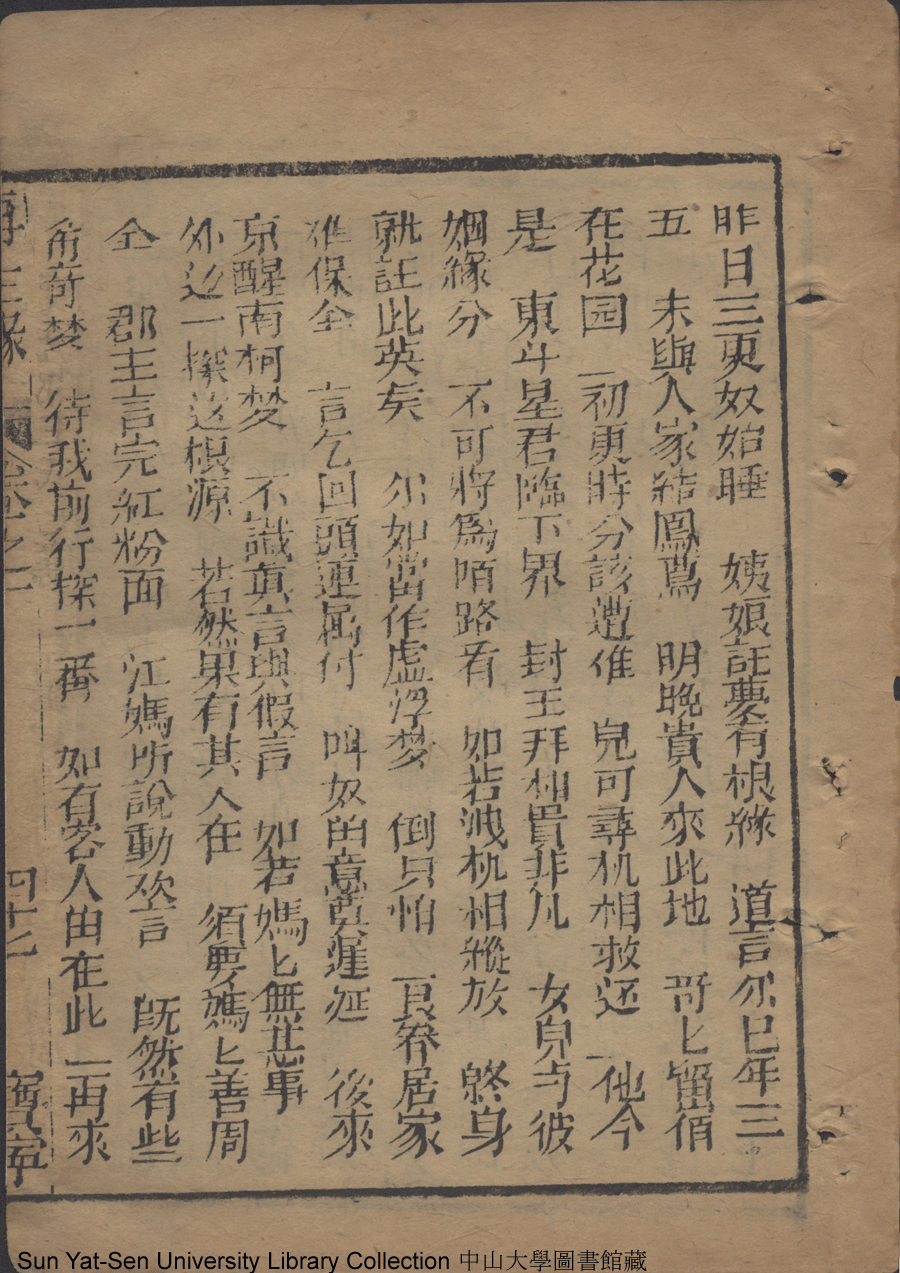 昨日三更奴始睡　姨娘託夢有根緣　道言尔巳年三
五　未與人家結鳳鳶　明晚貴人來此地　哥匕留宿
在花园　一初更時分該遭难　兒可尋机相救还　一他今
是　東斗星君臨下界　封王拜相貴非凡　女兒与彼
姻緣分　不可將為陌路看　如若洩机相縱放　終身
就託此英矣　尔如當作虛浮梦　倒只怕　良眷居家
难保全　言乞回頭連属付　叫奴的意莫遲延　後來
京醒南柯梦　不識真言與假言　如若媽匕無甚事
外边一探这根源　若然果有其人在　須要媽匕善周
全　郡主言完紅粉面　江媽所說動欢言　既然有些
希奇梦　待我前行探一番　如有客人由在此　一再來
再生緣　卷之一　四十七　寶寧
Sun Yat-Sen University Library Collection 中山大學圖書館藏